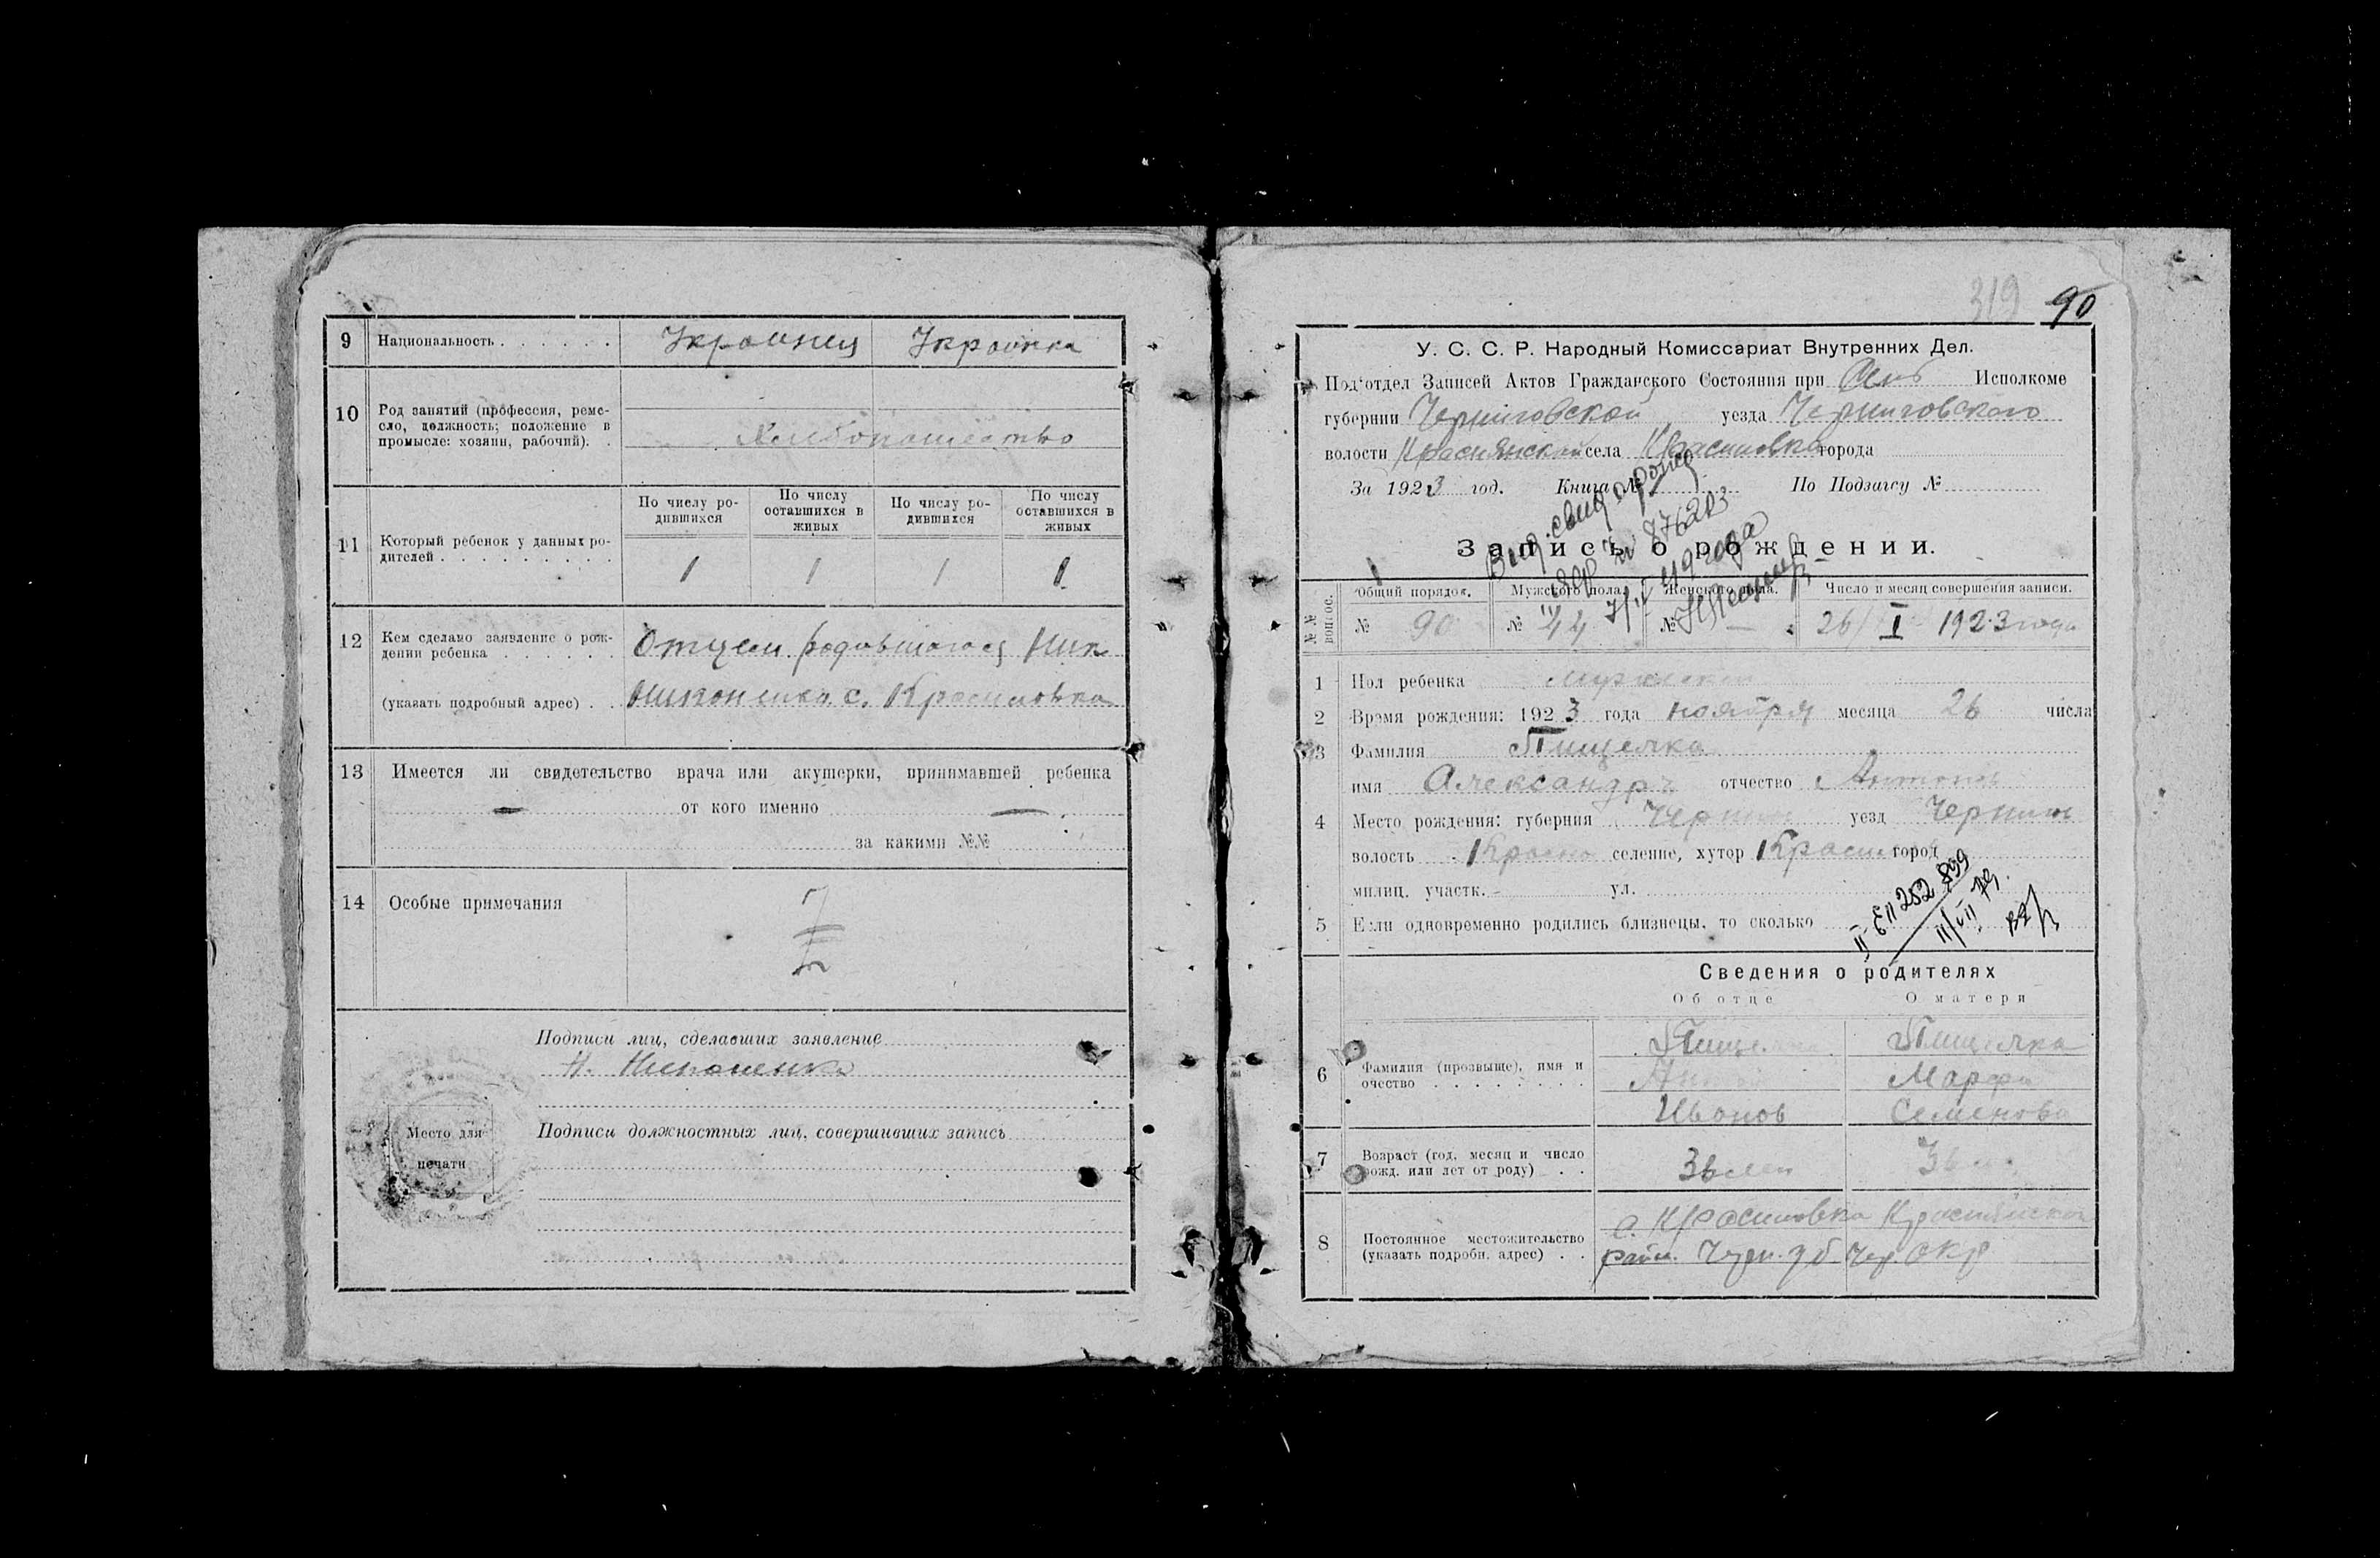 9 Национальность Украинец Украинка
10 Род занятий (профессия, реме-
сло, должность; положение в
промысле: хозяин, рабочий).
Хлебопашество
11 Который ребенок у данных ро-
дителей
По числу ро-
дившихся
По числу
оставшихся в
живых
По числу ро-
дившихся
По числу
оставшихся в
живых
1 1 1 1
12 Кем сделано заявление о рож-
дении ребенка
Отцем родившагося Ник
(указать подробный адрес)
с. Красиловка
13 Имеется ли свидетельство врача или акушерки, принимавшей ребенка
— от кого именно —
за какими №№
14 Особые примечания
Подписи лиц, сделавших заявление
Н. Никоненко
Место для
печати
Подписи должностных лиц, совершивших запись
319 90
У. С. С. Р. Народный Комиссариат Внутренних Дел.
Подотдел Записей Актов Гражданского Состояния при Исполкоме
губернии Черниговской уезда Черниговского
волости Краснянской села Красиловка города
За 1923 год. Книга № По Подзагсу №
Выд. свид. о рожд
№ 876203
49 года
Запись о рождении.
№№ вопрос.
Общий порядок. Мужского пола. Женского пола. Число и месяц совершения записи.
№ 90 № 44 № — 26/I 1923 года
1 Пол ребенка мужской
2 Время рождения: 1923 года ноября месяца 26 числа
3 Фамилия Пищелка
имя Александр отчество Антонов
4 Место рождения: губерния Черниг уезд Черниг
волость Красно селение, хутор Красил город
милиц. участк. ул.
5 Если одновременно родились близнецы, то сколько
II ЕЛ 252 839
11/VII 79.
Сведения о родителях
Об отце О матери
6 Фамилия (прозвище), имя и
очество
Пищелка Пищелка
Марфа
Иванов Семенова
7 Возраст (год, месяц и число
рожд. или лет от роду)
36 лет 36
8 Постоянное местожительство
(указать подробн. адрес)
с. Красиловка Краснянской
район. Черн. губ. Чер. окр